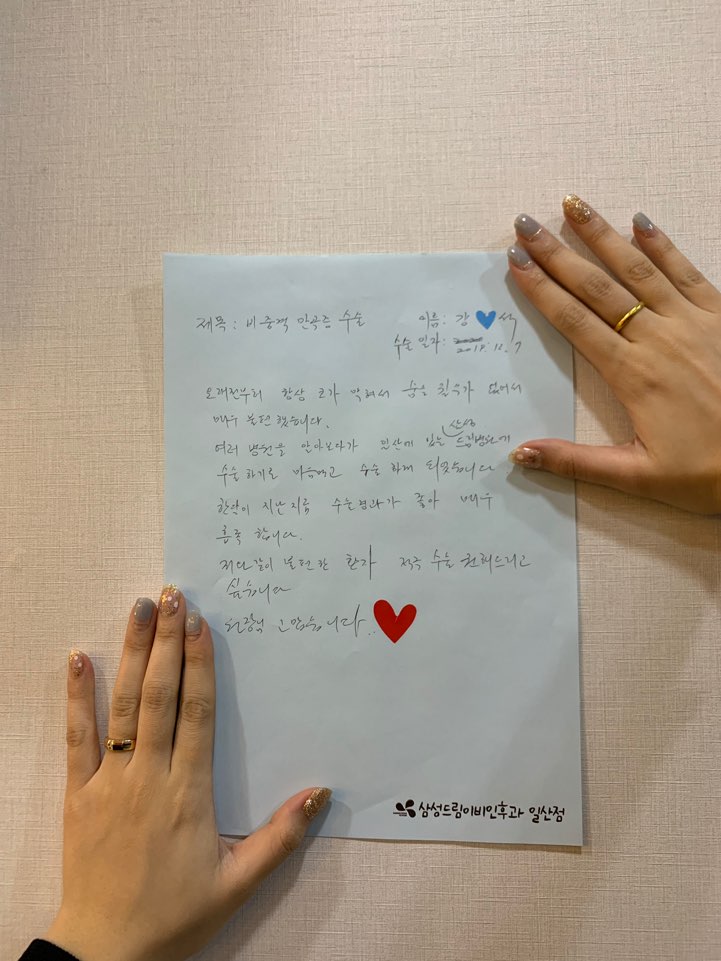 제목 : 비중격 만곡증 수술
이름 : 강 석
수술 일자 : 2018. 12. 7
오래전부터 항상 코가 막혀서 숨을 쉴 수가 없어서
매우 불편했습니다.
여러 병원을 알아보다가 일산에 있는 삼성 드림병원에
수술하기로 마음먹고 수술 하게 되었습니다
한달이 지난 지금 수술경과가 좋아 매우
흡족 합니다.
저와 같이 불편한 환자 적극 수술 권해드리고
싶습니다
원장님 고맙습니다..
삼성드림이비인후과 일산점